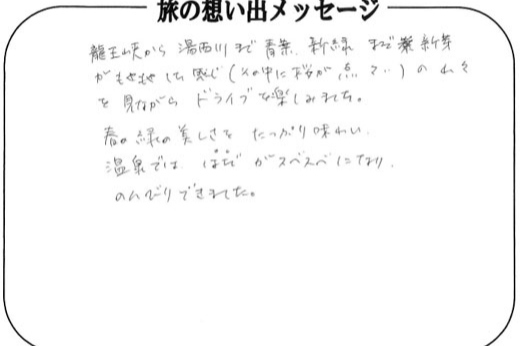 旅の想い出メッセージ
龍王峡から湯西川まで青葉、新緑 まだ 新芽
がもせもせした感じ(その中に桜が点々‥)の山々
を見ながらドライブを楽しみました。
春の緑の美しさをたっぷり味わい、
温泉では はだがスベスベになり、
のんびりできました。